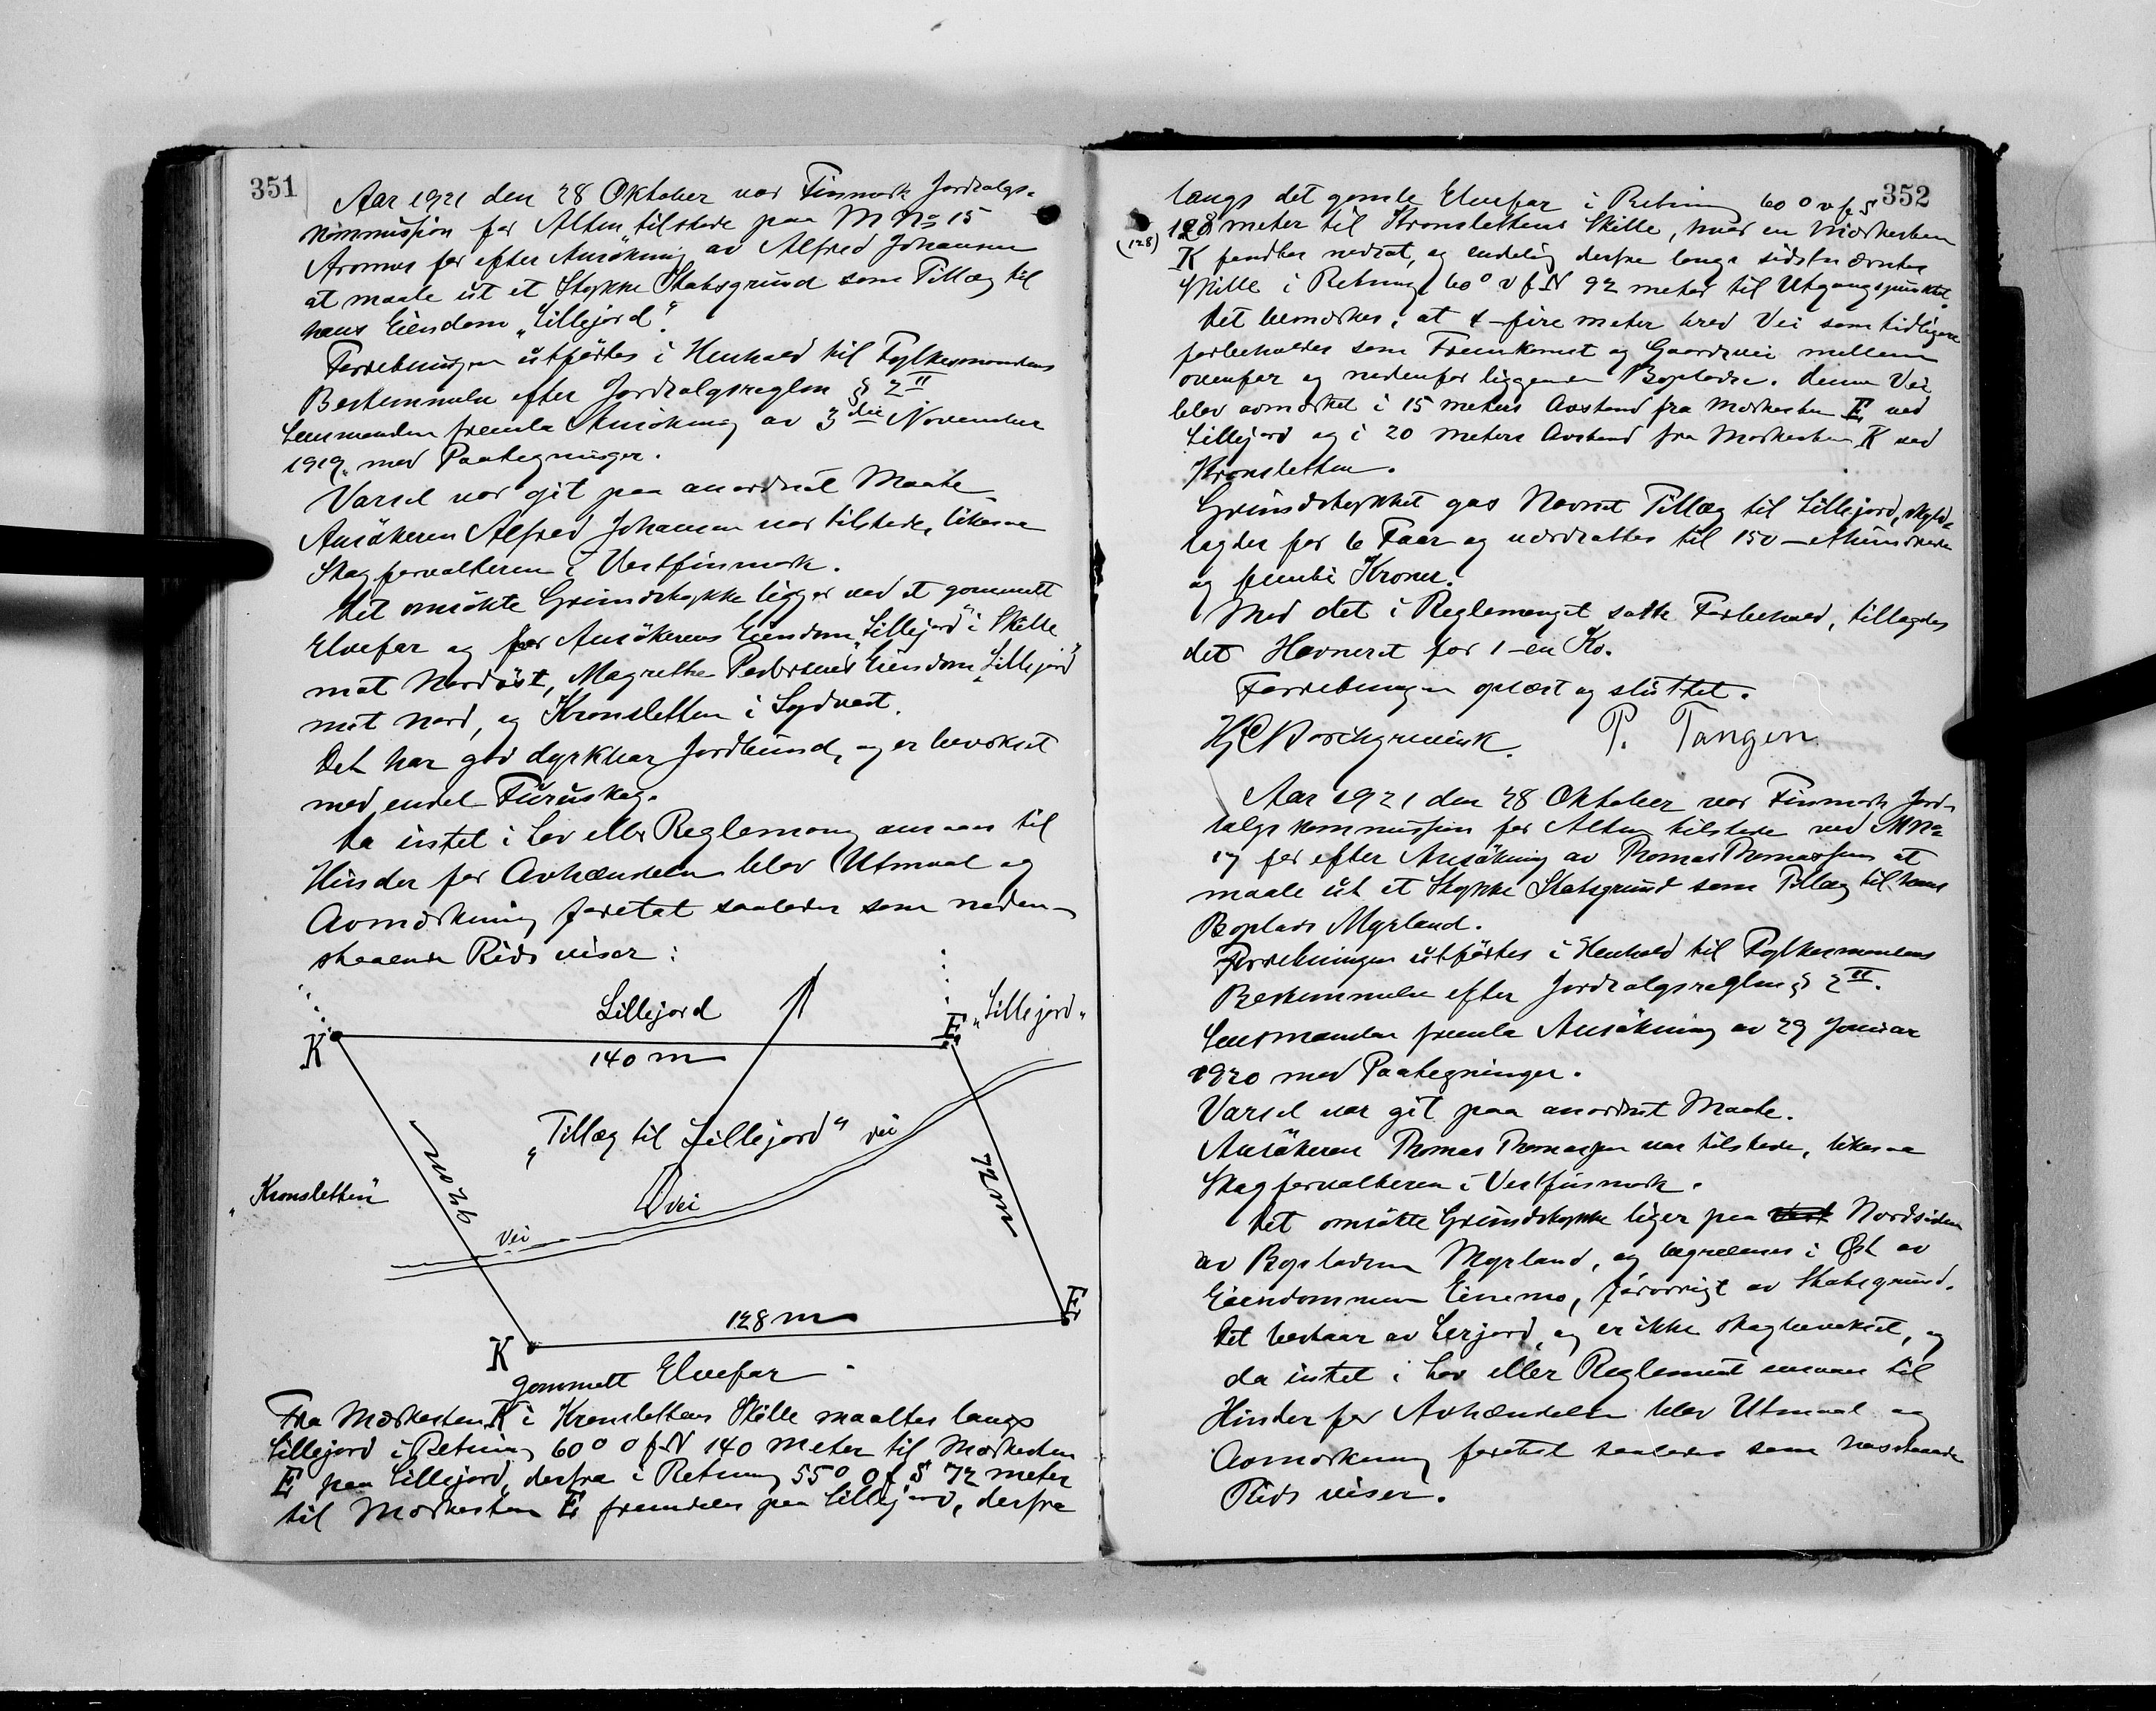 351
Aar 1921 den 28 Oktober var Finmark Jordsalgs-
kommission for Alten tilstede paa M No 15
Aronnes for efter Ansökning av Alfred Johansen
at maale ut et Stykke Statsgrund som Tillæg til
hans Eiendom „Lillejord".
Forretningen utförtes i Henhold til Fylkesmandens
Bestemmelse efter Jordsalgsreglem § 2 II
Lensmanden fremla Ansökning av 3die November
1919 med Paategninger.
Varsel var git paa anordnet Maate
Ansökeren Alfred Johansen var tilstede, likesaa
Skogforvalteren i Vestfinmark.
Det ansökte Grundstykke ligger ved et gammelt
Elvefar og har Ansökerens Eiendom „Lillejord" i Skille
mot Nordöst, Magrethe Pedersens Eiendom „Lillejord"
mot Nord, og Kronsletten i Sydvest.
Det har god dyrkbar Jordbund, og er bevokset
med endel Furuskog.
Da intet i Lov eller Reglement ansaas til
Hinder for Avhændelsen blev Utmaal og
Avmerkning foretat saaledes som neden-
staaende Rids viser:
Lillejord
K
E
„Lillejord"
140 m
„Tillæg til Lillejord"
vei
92 m
72 m
„Kronsletten"
vei
Vei
128 m
E
K
gammelt Elvefar
Fra Merkesten K i Kronslettens Skille maaltes langs
Lillejord i Retning 60° O f N 140 meter til Merkesten
E paa Lillejord, derfra i Retning 55° O f S 72 meter
til Merkesten E fremdeles paa Lillejord, derfra
352
langs det gamle Elvefar i Retning 60° v f S
(128) 128 meter til Kronslettens Skille, hvor en Merkesten
K fandtes nedsat, og endelig derfra langs sidstnævnte
Skille i Retning 60° v f N 92 meter til Utgangspunktet.
Det bemerkes, at 4-fire meter bred Vei som tidligere
forbeholdes som Fremkomst og Gaardsvei mellem
ovenfor og nedenfor liggende Bopladse. Denne Vei
blev avmerket i 15 meters Avstand fra Merkesten E ved
Lillejord og i 20 meters Avstand fra Merkesten K ved
Kronsletten.
Grundstykket gas Navnet Tillæg til Lillejord, skyld-
lagdes for 6 Faar og værdsattes til 150 - ethundrede
og femti Kroner.
Med det i Reglementet satte Forbehold, tillagdes
det Havneret for 1-en Ko.
Forretningen oplæst og sluttet.
P. Tangen
Aar 1921 den 28 Oktober var Finmark Jord-
salgskommission for Alten tilstede ved M No
17 for efter Ansökning av Thomas Thomassen at
maale ut et Stykke Statsgrund som Tillæg til hans
Boplads Myrland.
Forretningen utförtes i Henhold til Fylkesmandens
Bestemmelse efter Jordsalgsreglem § 2 II.
Lensmanden fremla Ansökning av 29 Januar
1920 med Paategninger.
Varsel var git paa anordnet Maate.
Ansökeren Thomas Thomassen var tilstede, likesaa
Skogforvalteren i Vestfinmark.
Det ansökte Grundstykke liger paa Nordsiden
av Bopladsen Myrland, og begrænses i Öst av
Eiendommen Einemo, forövrigt av Statsgrund.
Det bestaar av Lerjord, og er ikke skogbevokset, og
da intet i Lov eller Reglement ansaas til
Hinder for Avhændelsen blev Utmaal og
Avmerkning foretat saaledes som hosstaaende
Rids viser.